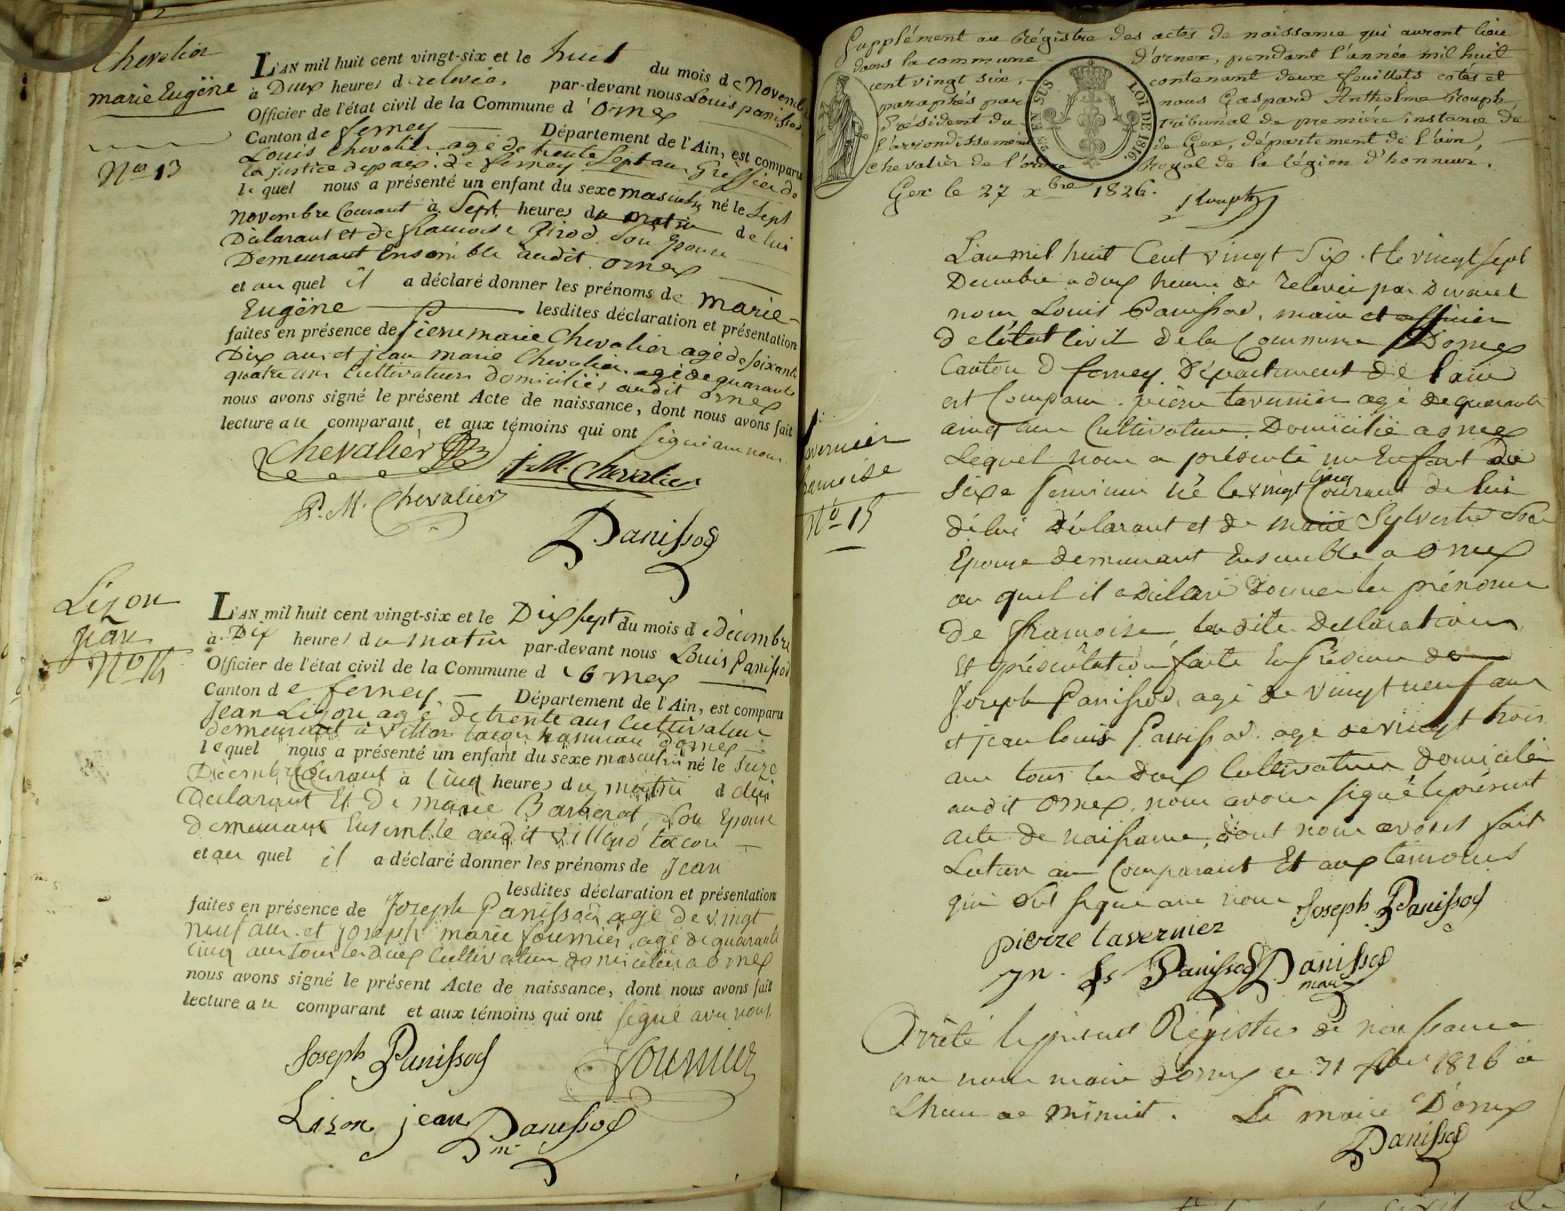 Chevalier
marie Eugène
No 13
L'AN mil huit cent vingt-six et le huit du mois de Novembre
à Deux heures de relevée, par-devant nous Louis panissod
Officier de l'état civil de la Commune d'ornex
Canton de ferney Département de l'Ain, est comparu
Louis Chevalier agé de trente sept ans Greffier de
la justice de paix de ferney
lequel nous a présenté un enfant du sexe masculin né le Sept
Novembre Courant à Sept heures du matin de lui
Déclarant et de françoise Girod Son Epouse
Demeurant Ensemble audit ornex
et au quel il a déclaré donner les prénoms de marie
Eugène lesdites déclaration et présentation
faites en présence de pierre marie Chevalier agé de soixante
Dix ans et jean marie Chevalier agé de quarante
quatre ans Cultivateurs domiciliés audit ornex
nous avons signé le présent Acte de naissance, dont nous avons fait
lecture au comparant et aux témoins qui ont signé avec nous.
Chevalier
J. M. Chevalier
P. M. Chevalier
Panissod
Lizon
jean
No 14
L'AN mil huit cent vingt-six et le Dix sept du mois de décembre
à Dix heures du matin par-devant nous Louis Panissod
Officier de l'état civil de la Commune d'Ornex
Canton de ferney Département de l'Ain, est comparu
Jean Lizon agé de trente ans Cultivateur
demeurant à Villard tacon hameau d'ornex
lequel nous a présenté un enfant du sexe masculin né le Seize
Décembre Courant à Cinq heures du matin de lui
Déclarant Et De marie Son Epouse
demeurant Ensemble audit Villard tacon
et au quel il a déclaré donner les prénoms de Jean
lesdites déclaration et présentation
faites en présence de Joseph Panissod agé de vingt
neuf ans et joseph marie fournier, agé de quarante
Cinq ans tous les deux Cultivateurs domiciliés a ornex
nous avons signé le présent Acte de naissance, dont nous avons fait
lecture au comparant et aux témoins qui ont signé avec nous.
Joseph Panissod
fournier
Lizon jean
Panissod
m
Supplément au Régistre des actes de naissance qui auront lieu
dans la commune d'ornex, pendant l'année mil huit
cent vingt six, contenant deux feuillets cotés et
paraphés par nous Gaspard Anthelme
Président du Tribunal de première instance de
l'arrondissement de Gex, département de l'ain,
chevalier de l'ordre Royal de la légion d'honneur.
Gex le 27 xbre 1826.
EN SUS
LOI DE 1816
Tavernier
françoise
No 15
L'an mil huit Cent vingt Six et le vingt Sept
Decembre a deux heures de relevée par Devant
nous Louis Panissod, maire et officier
de l'état Civil de la Commune D'ornex
Canton de ferney Département de l'ain
est Comparu pierre tavernier agé de quarante
cinq ans Cultivateur Domicilié a ornex
Lequel nous a présenté un Enfant du
Sexe feminin né le vingt Cinq Courant de lui
de lui déclarant et de marie Sylvestre Son
Epouse demeurant Ensemble a ornex
au quel il a déclaré donner les prénoms
de françoise, les dites Déclaration
Et présentation faites En présence de
Joseph Panissod, agé de vingt neuf ans
et jean louis Panissod agé de vingt trois
ans tous les deux Cultivateurs domiciliés
audit ornex, nous avons signé le présent
acte de naissance, dont nous avons fait
Lecture au Comparant Et aux témoins
qui ont signé avec nous Joseph Panissod
pierre tavernier
jn. Ls Panissod Panissod
maire
Arrêté le présent Régistre de naissance
par nous maire d'ornex ce 31 xbre 1826 a
L'heure de minuit. Le maire D'ornex
Panissod